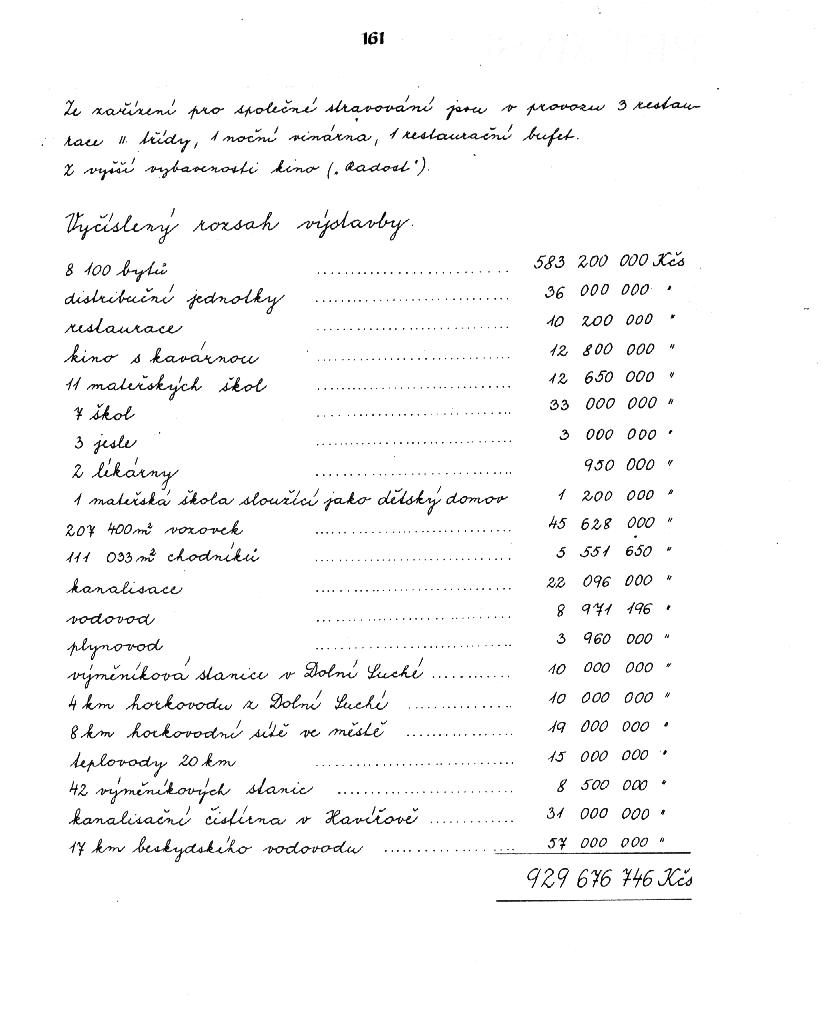 161
Ze zařízení pro společné stravování jsou v provozu 3 restau-
race II. třídy, 1 noční vinárna, 1 restaurační bufet.
Z vyšší vybavenosti kino („Radost").
Vyčíslený rozsah výstavby.
8 100 bytů .............................. 583 200 000 Kčs
distribuční jednotky .............................. 36 000 000 "
restaurace .............................. 10 200 000 "
kino s kavárnou .............................. 12 800 000 "
11 mateřských škol .............................. 12 650 000 "
7 škol .............................. 33 000 000 "
3 jesle .............................. 3 000 000 "
2 lékárny .............................. 950 000 "
1 mateřská škola sloužící jako dětský domov 1 200 000 "
207 400 m² vozovek .............................. 45 628 000 "
111 033 m² chodníků .............................. 5 551 650 "
kanalisace .............................. 22 096 000 "
vodovod .............................. 8 971 196 "
plynovod .............................. 3 960 000 "
výměníková stanice v Dolní Suché ............ 10 000 000 "
4 km horkovodu z Dolní Suché ................ 10 000 000 "
8 km horkovodní sítě ve městě ................ 19 000 000 "
teplovody 20 km .............................. 15 000 000 "
42 výměníkových stanic .......................... 8 500 000 "
kanalisační čistírna v Havířově ............. 31 000 000 "
17 km beskydského vodovodu .................... 57 000 000 "
929 676 746 Kčs